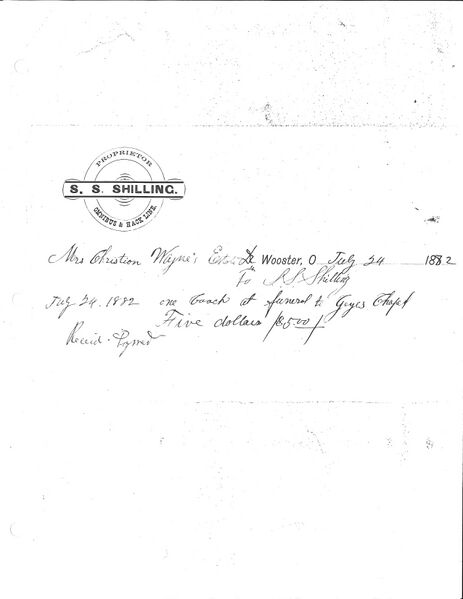 PROPRIETOR
S. S. SHILLING.
OMNIBUS & HACK LINE.
Mrs Christion Wayne's Estate Wooster, O July 24 1882
To S. S. Shilling
July 24. 1882 one Coach at funeral to Geyes Chapel
Five dollars $5.00
Receid. Paymet